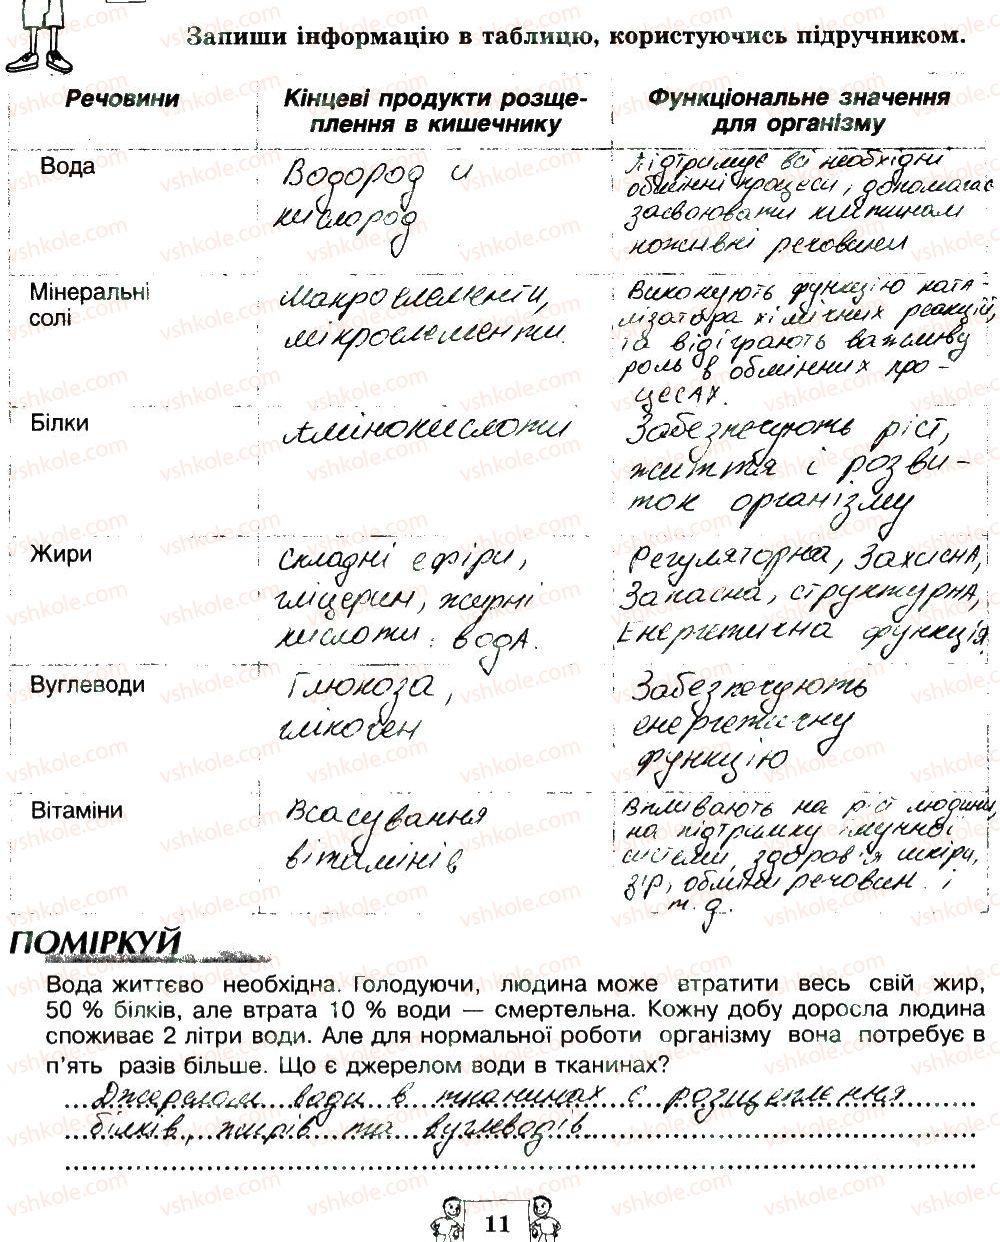 Запиши інформацію в таблицю, користуючись підручником.
Речовини
Кінцеві продукти розще-
плення в кишечнику
Функціональне значення
для організму
Вода
Водород и
кислород
Підтримує всі необхідні
обмінні процеси, допомагає
засвоювати клітинам
поживні речовини
Мінеральні
солі
Макроелементи,
мікроелементи.
Виконують функцію ката-
лізатора хімічних реакцій,
та відіграють важливу
роль в обмінних про-
цесах.
Білки
Амінокислоти
Забезпечують ріст,
життя і розви-
ток організму
Жири
складні ефіри,
гліцерин, жирні
кислоти, вода.
Регуляторна, Захисна,
Запасна, структурна,
Енергетична функція
Вуглеводи
Глюкоза,
глікоген
Забезпечують
енергетичну
функцію
Вітаміни
Всасування
вітамінів
Впливають на ріст людини,
на підтримку імунної
системи, здоров'я шкіри,
зір, обміни речовин і
т.д.
ПОМІРКУЙ
Вода життєво необхідна. Голодуючи, людина може втратити весь свій жир,
50 % білків, але втрата 10 % води — смертельна. Кожну добу доросла людина
споживає 2 літри води. Але для нормальної роботи організму вона потребує в
п'ять разів більше. Що є джерелом води в тканинах?
Джерелом води в тканинах є розщеплення
білків, жирів та вуглеводів
11